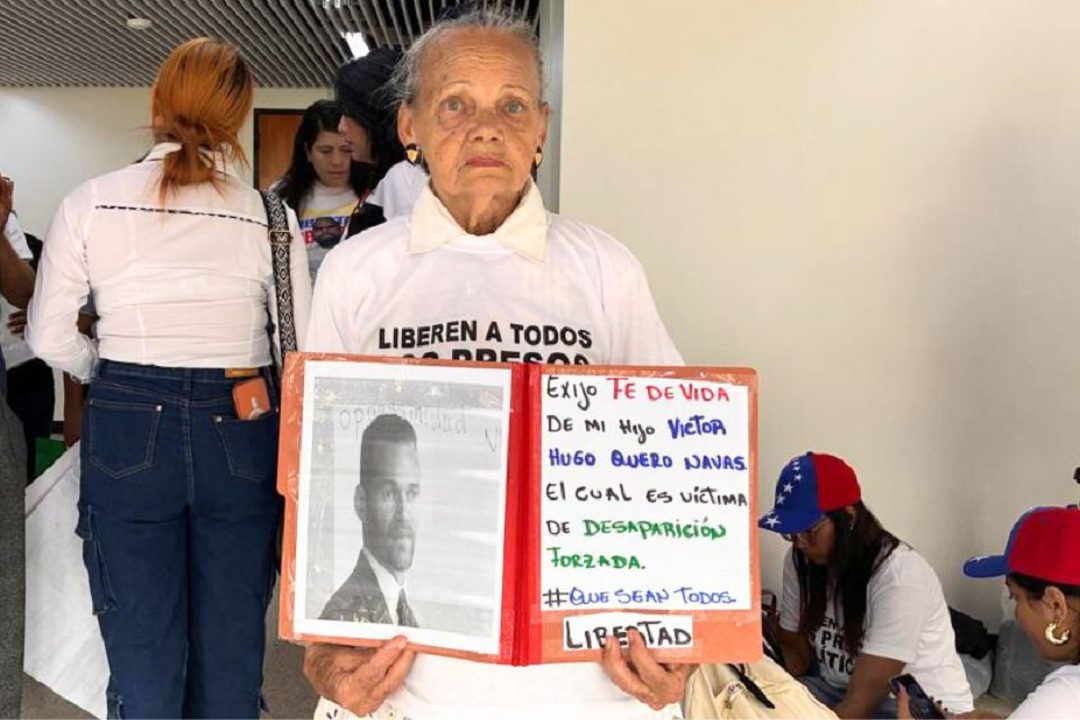 LIBEREN A TODOS
PRESOS
EXIJO FE DE VIDA
DE MI HIJO VICTOR
HUGO QUERO NAVAS.
EL CUAL ES VÍCTIMA
DE DESAPARICIÓN
FORZADA.
#QUE SEAN TODOS.
LIBERTAD